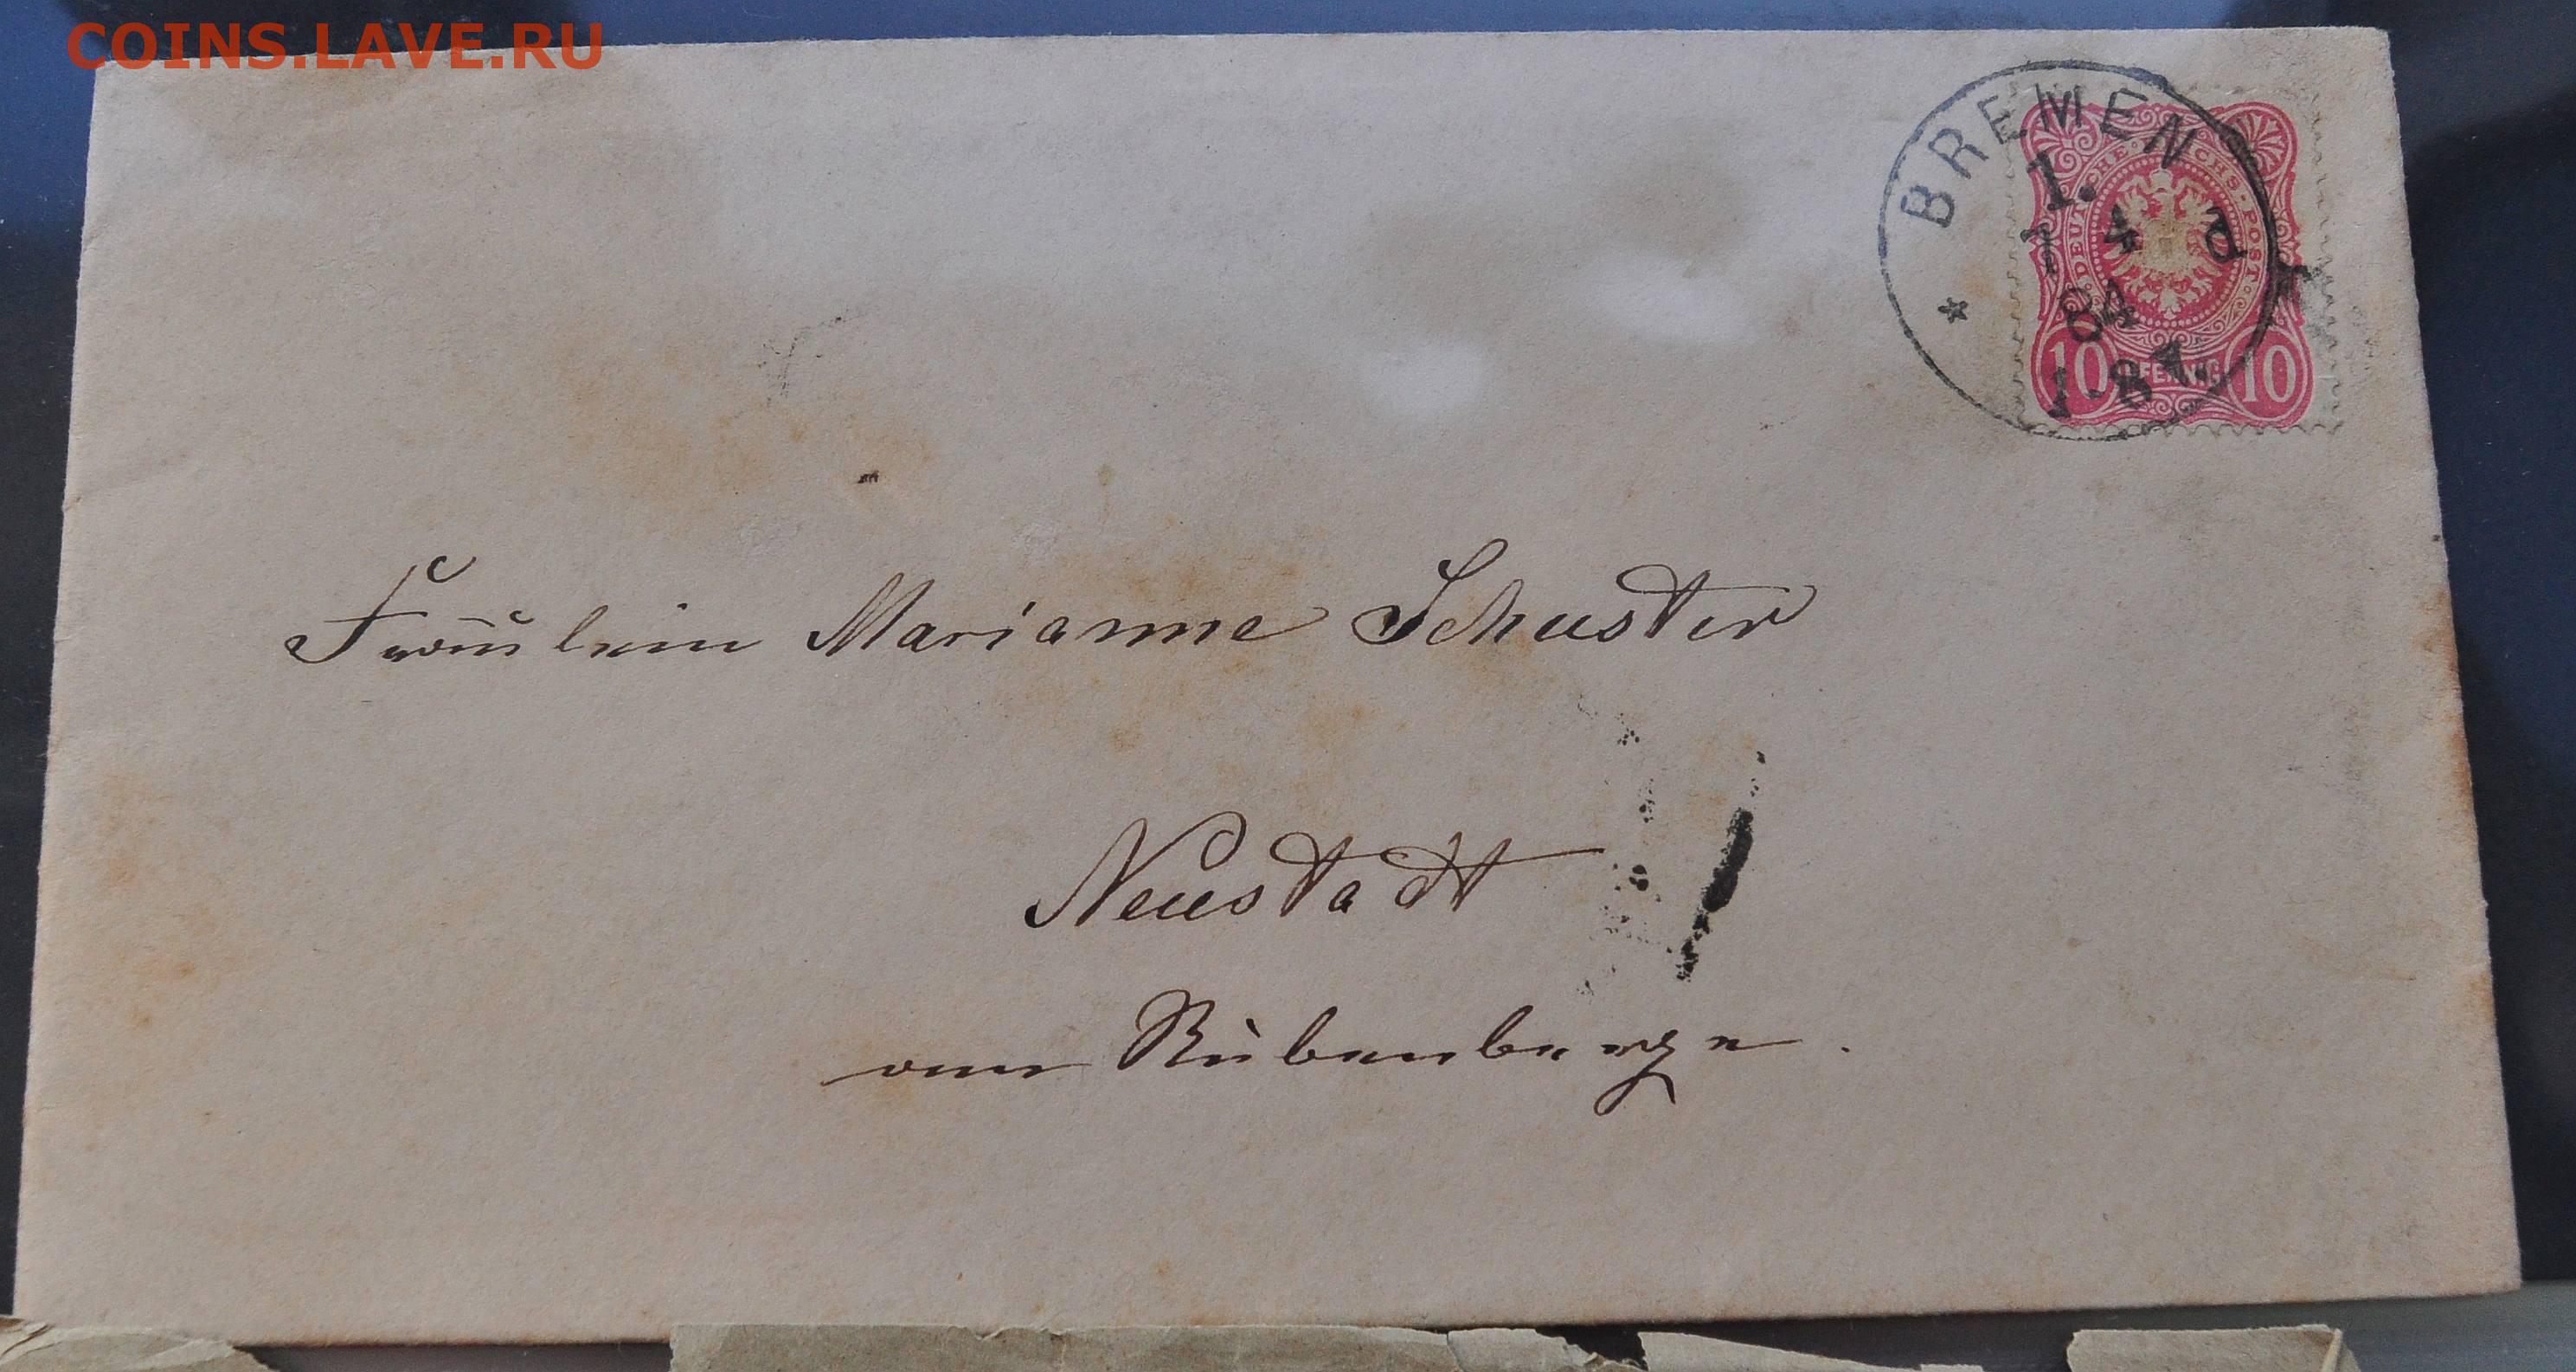 COINS.LAVE.RU
BREMEN
1.
1 4 d
84
1-8V.
DEUTSCHE REICHS-POST
10 PFENNIG 10
Fräulein Marianne Schuster
Neustadt
am Rübenberge.